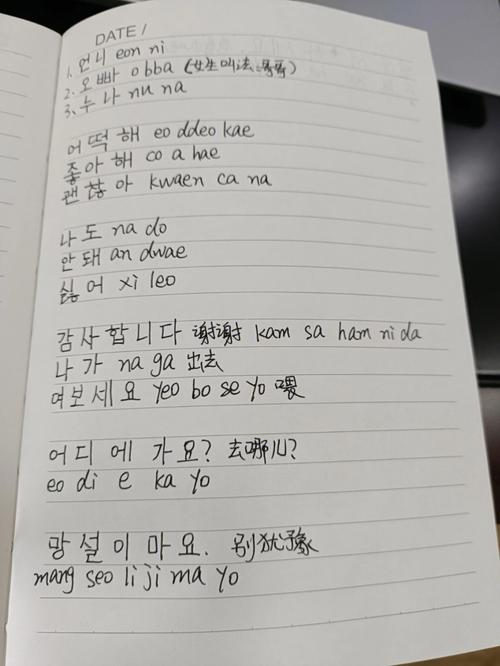 DATE /
1. 언니 eon ni
2. 오빠 obba (女生叫法:哥哥)
3. 누나 nu na
어떡해 eo ddeo kae
좋아해 co a hae
괜찮아 kwaen ca na
나도 na do
안돼 an dwae
싫어 xi leo
감사합니다 谢谢 kam sa ham ni da
나가 na ga 出去
여보세요 yeo bo se yo 喂
어디에 가요? 去哪儿?
eo di e ka yo
망설이마요. 别犹豫
mang seo li ji ma yo